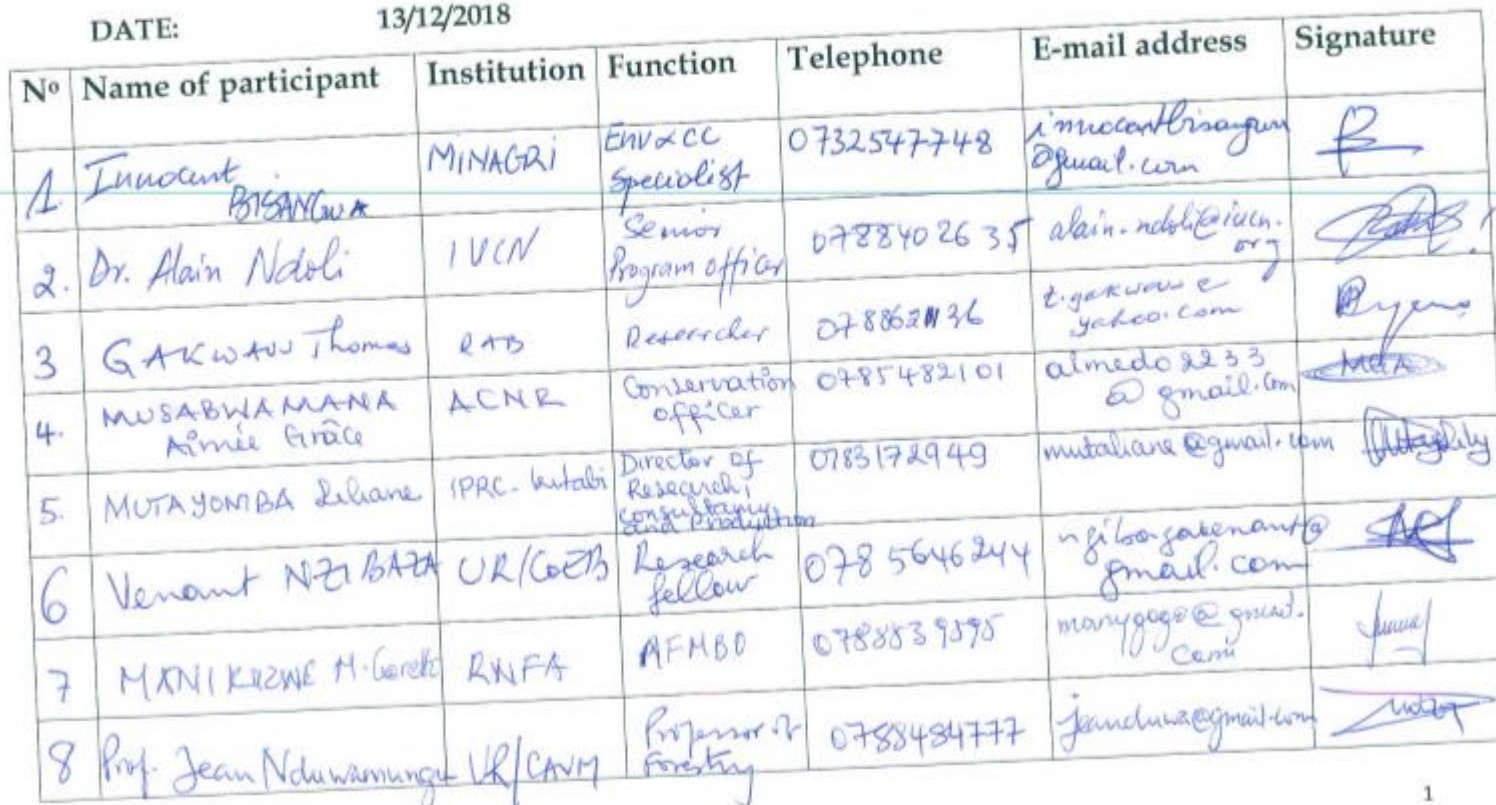 DATE: 13/12/2018
Nº Name of participant Institution Function Telephone E-mail address Signature
1. Innocent BISANGWA MINAGRI Env & CC Specialist 0732547748 @gmail.com
2. Dr. Alain Ndoli IUCN Senior Program officer 0788402635 alain.ndoli@iucn.org
3 GAKWAVU Thomas RAB Researcher yahoo.com
4. MUSABWAMANA Aimée Grâce ACNR Conservation officer 0785482101 aimedo2233@gmail.com
5. MUTAYOMBA Liliane IPRC-Kitabi Director of Research, consultancy and Production 0783172949 mutaliane@gmail.com
6 Venant NZIBAZA UR/CoEB Research fellow 0785646244 gmail.com
7 MANIKUZWE RNFA AFMBO 0788539595
8 Prof. Jean Nduwamungu UR/CAVM Professor of Forestry 0788484777 jeanduwa@gmail.com
1